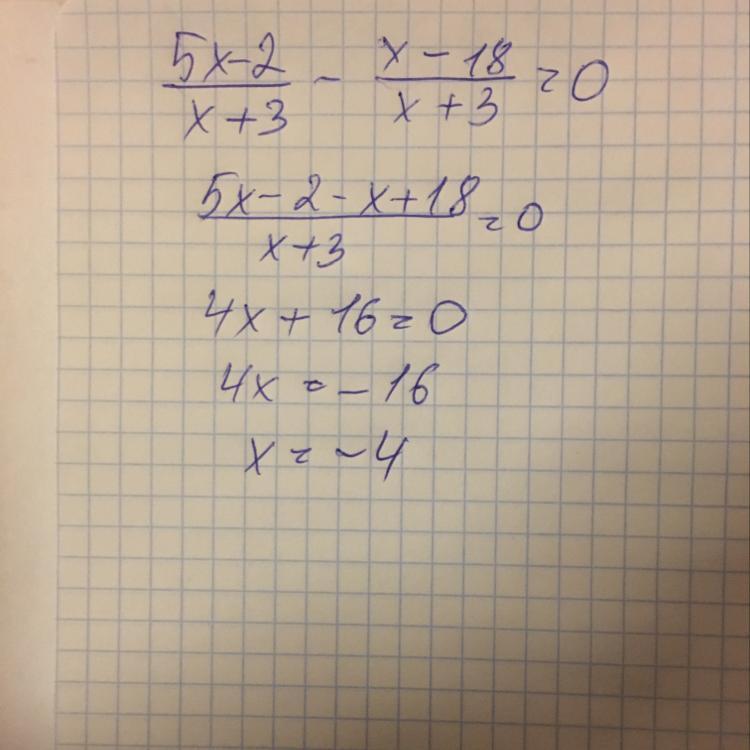 5x-2/x+3 - x-18/x+3 = 0
5x-2-x+18/x+3 = 0
4x+16=0
4x=-16
x=-4